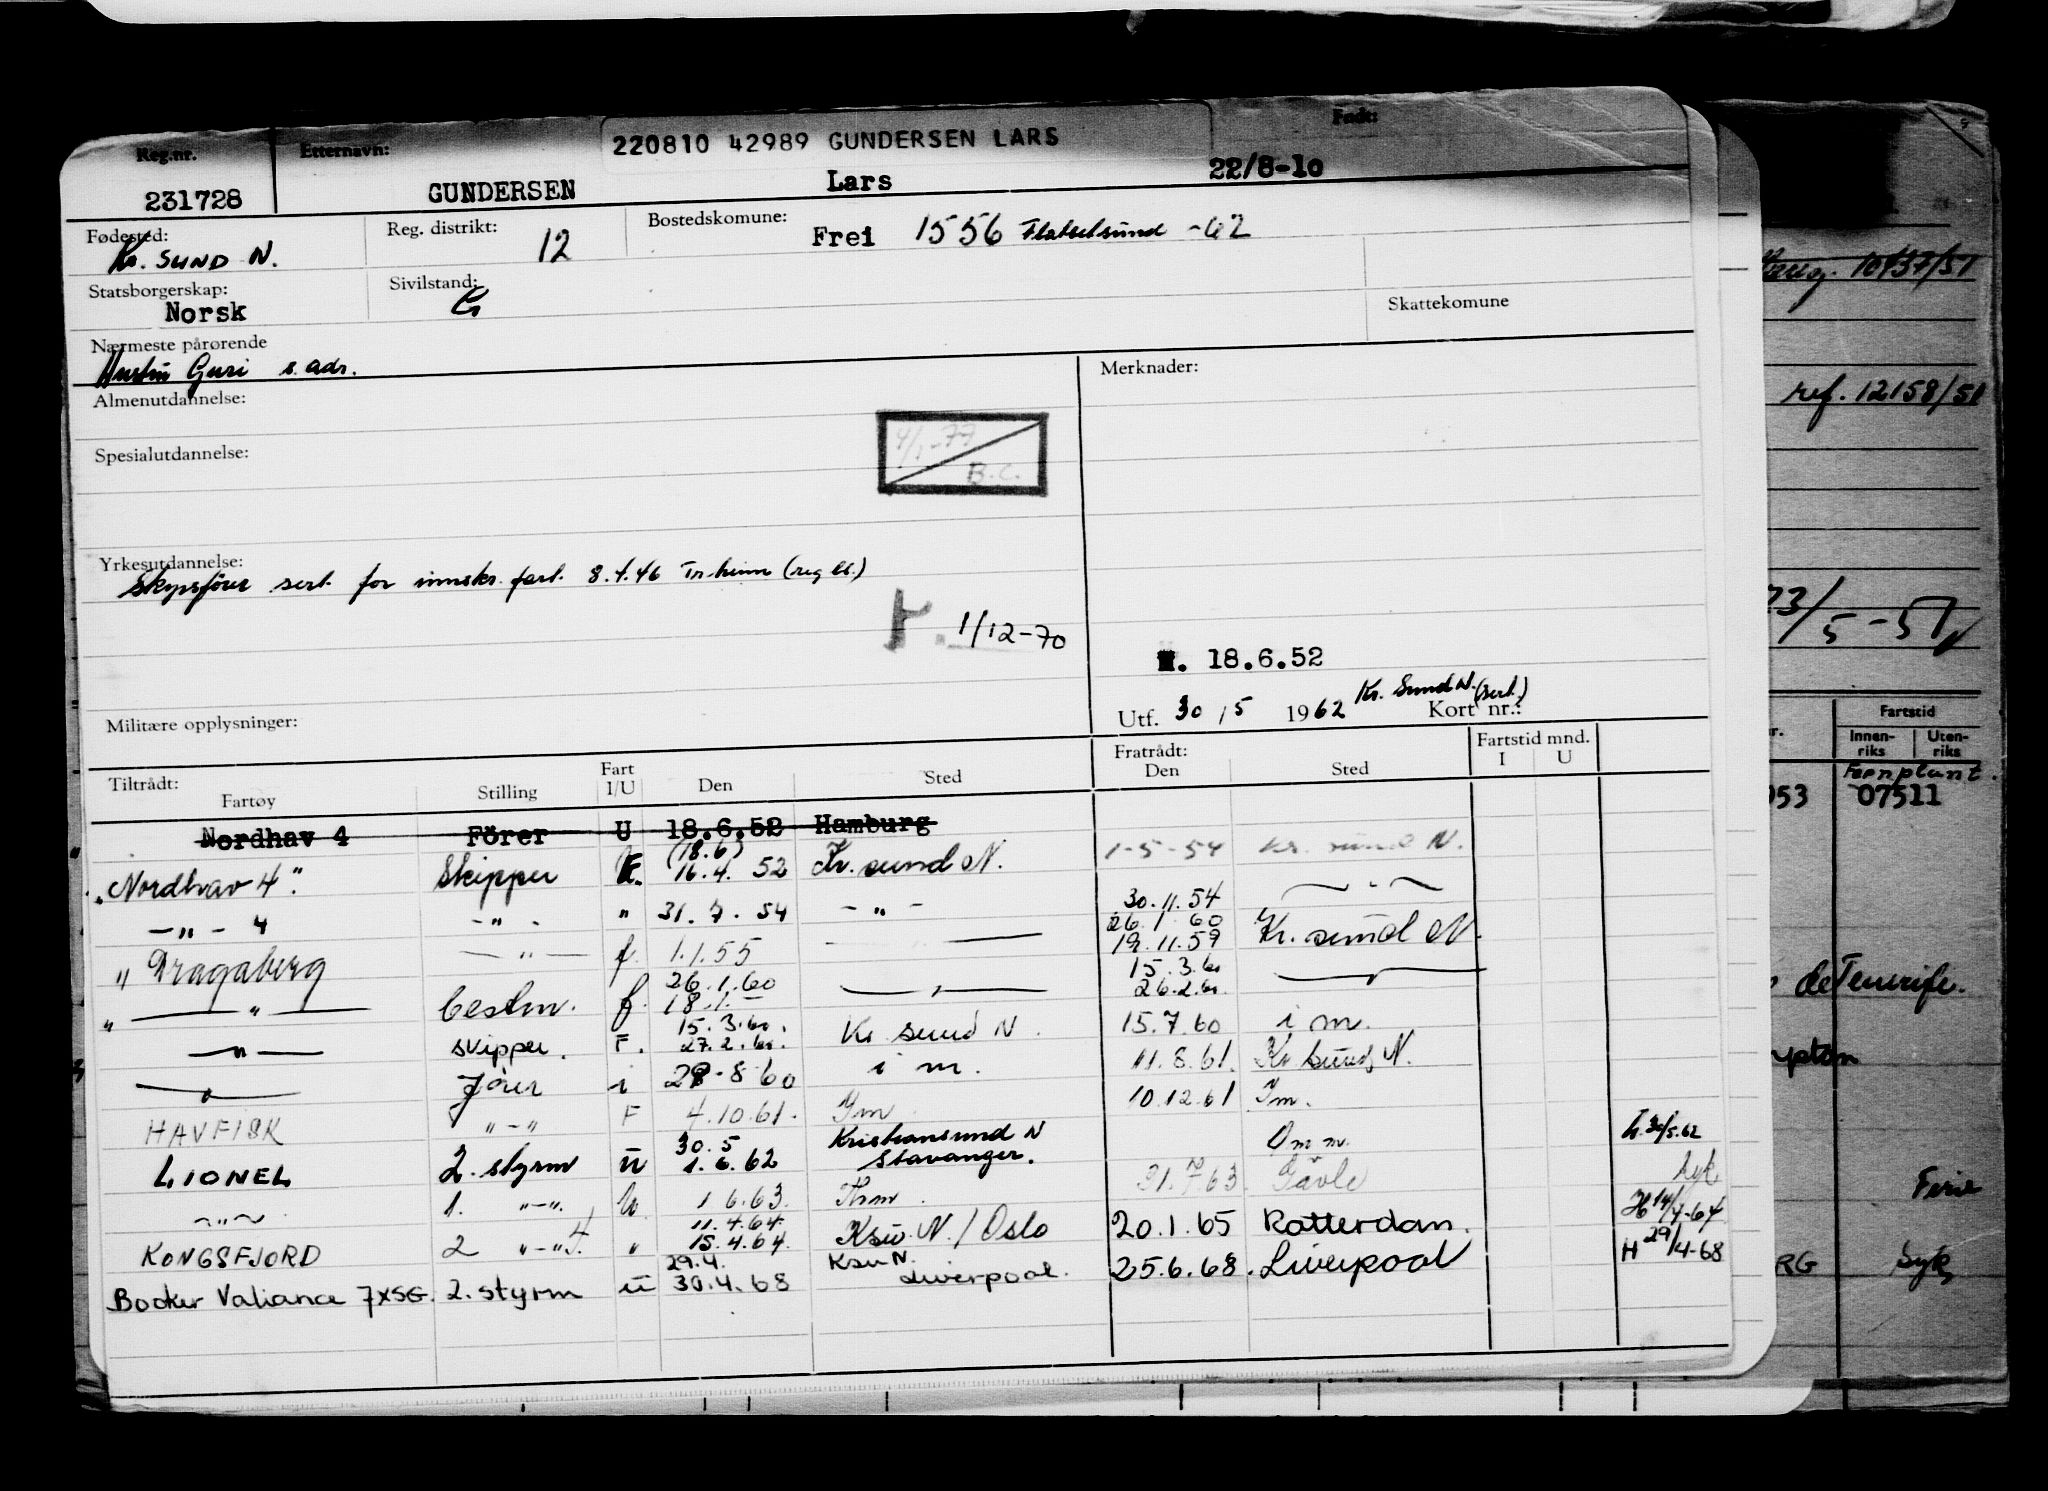 220810 42989 GUNDERSEN LARS
Reg.nr. Etternavn: Født:
231728 GUNDERSEN Lars 22/8-10
Fødested: Reg. distrikt: Bostedskomune:
Kr. SUND N. 12 Frei 1556 Flatsetsund -62
Statsborgerskap: Sivilstand: Skattekomune
Norsk G
Nærmeste pårørende
Hustru Guri s. adr.
Merknader:
Almenutdannelse:
4/1-77
B.C.
Spesialutdannelse:
Yrkesutdannelse:
Skipsfører sert. for innskr. fart. 8.4.46 Tr.heim (reg bl.)
1/12-70
18.6.52
Utf. 30/5 1962 Kr. Sund N. (sert.) Kort nr.:
Militære opplysninger:
Tiltrådt: Fratrådt: Fartstid mnd.
Fartøy Stilling Fart I/U Den Sted Den Sted I U
Nordhav 4 Förer U 18.6.52 Hamburg
"Nordhav 4". Skipper (18.6) 16.4. 52 Kr. sund N. 1-5-54 Kr. sund N.
-"- 4 -"- " 31.7.54 -"- 30.11.54 -"-
" Dragaberg -"- f. 1.1.55 26 1 60 19.11.59 Kr. sund N.
" -"- bestm. f. 26.1.60 18.1.- -"- 15.3.60 26.2.60 -"-
-"- skipper. F. 15.3.60. 27.2.60. Kr sund N. 15.7.60 i m.
-"- fører i 29-8 60 i m. 11.8.61. Kr sund N.
HAVFISK "-" F 4.10.61. Im 10.12.61 Im.
LIONEL 2. styrm u 30.5 1.6.62 Kristiansund N Stavanger. Om m. 30/5.62
-"- 1. "-". u. 1 6.63. 31. 63. Gävle syk
KONGSFJORD 2 "-" " 11.4.64. 15.4.64. Ksu. N. / Oslo 20.1.65 Rotterdam. H 14/4-64
Booker Valiance 7XSG. 2. styrm u 29.4. 30.4.68 Ksu N. Liverpool. 25.6.68. Liverpool H 29/4-68
10137/51
ref. 12158/51
73/5-51
Fartstid
Innen-riks Uten-riks
Fernplant.
953 07511
de Tenerife.
Ferie
RG Syk